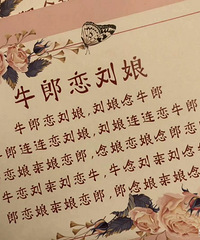 牛郎恋刘娘
牛郎恋刘娘,刘娘念牛郎
刘娘连连恋牛郎
念娘来娘恋郎,念娘恋娘念郎恋
恋刘来刘恋牛,牛念刘来刘
郎恋娘来娘恋郎,郎念娘来娘念